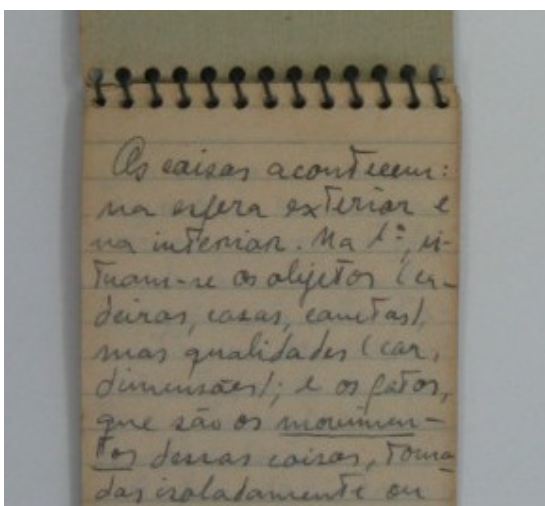 As coisas acontecem:
na esfera exterior e
na interior. Na 1ª, si-
tuam-se os objetos (ca-
deiras, casas, canetas),
suas qualidades (cor,
dimensões); e os fatos,
que são os movimen-
tos dessas coisas, toma-
das isoladamente ou